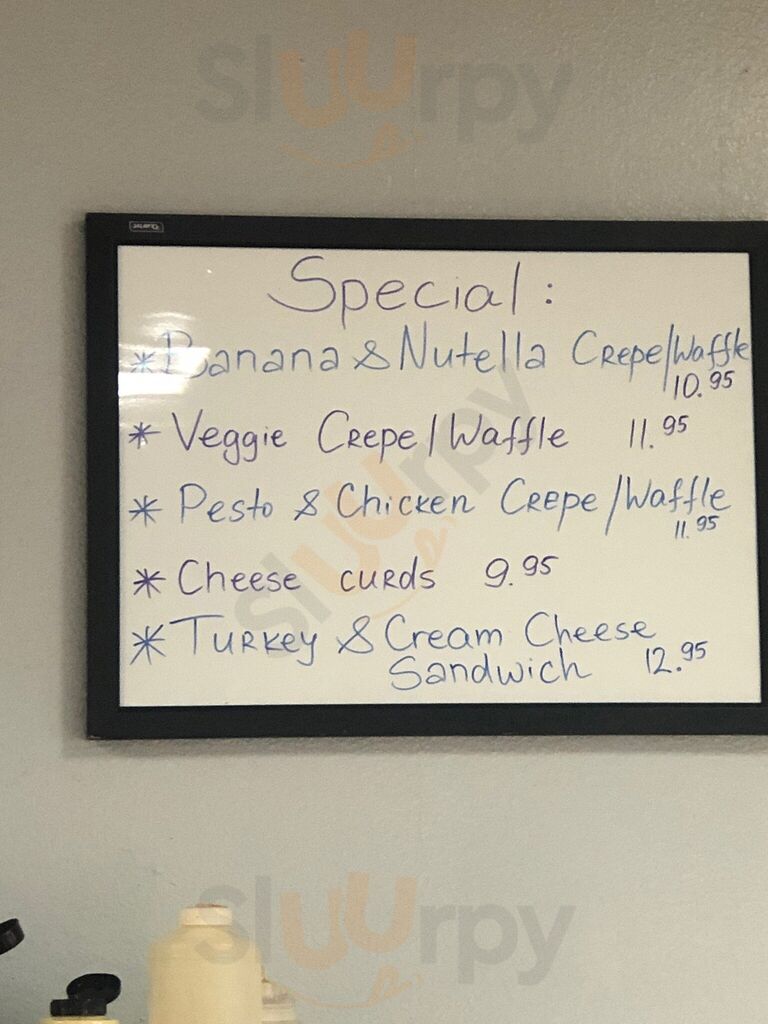 Sluurpy
Special:
* Banana & Nutella Crepe/Waffle
10.95
* Veggie Crepe/Waffle 11.95
* Pesto & Chicken Crepe/Waffle
11.95
* Cheese curds 9.95
* Turkey & Cream Cheese
Sandwich 12.95
sluurpy
Sluurpy